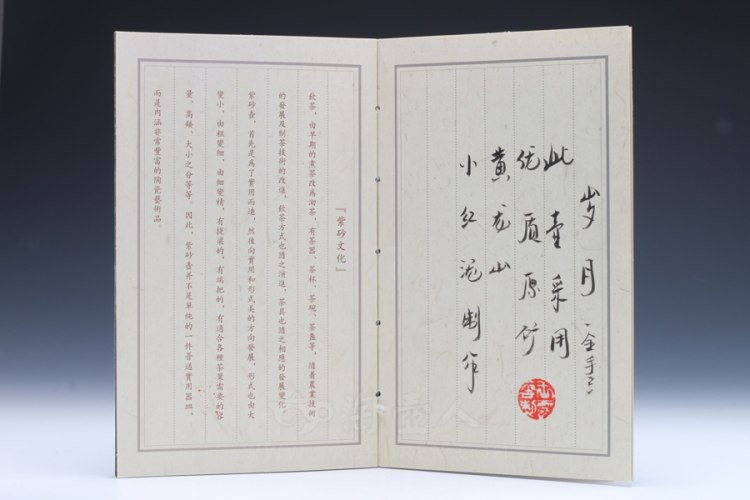 岁月 (全手工)
此壶采用
优质原矿
黄龙山
小红泥制作
『紫砂文化』
飲茶，由早期的煮茶改爲沏茶，有茶器、茶杯、茶碗、茶盅等，隨着農業技術
的發展及制茶技術的改進，飲茶方式也隨之演進，茶具也隨之相應的發展變化。
紫砂壺，首先是爲了實用而造，然後向實用和形式美的方向發展，形式也由大
變小，由粗變細，由細變精，有提梁的，有端把的，有適合各種茶葉需要的容
量，高矮，大小之分等等。因此，紫砂壺并不是單純的一件普通實用器皿，
而是内涵非常豐富的陶瓷藝術品。